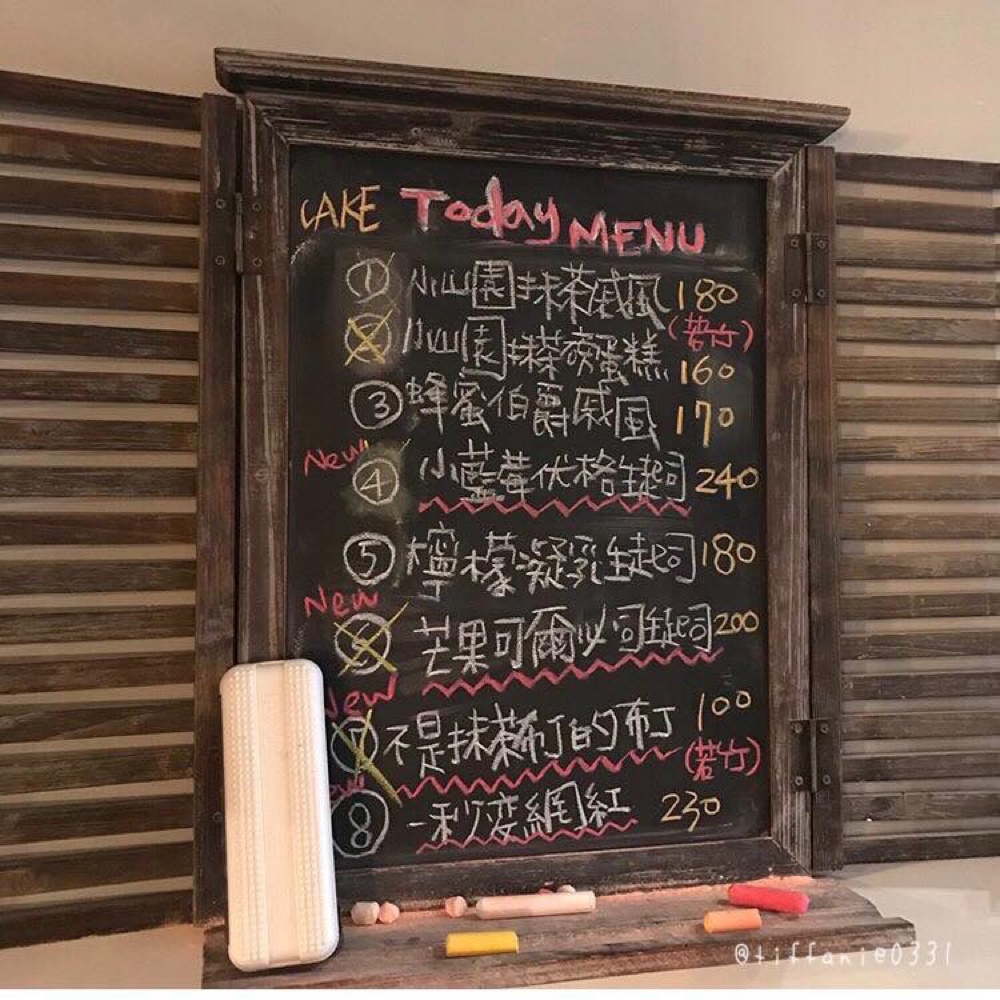 CAKE Today MENU
① 小山園抹茶戚風 180
(若竹)
② 小山園抹茶磅蛋糕 160
③ 蜂蜜伯爵戚風 170
New
④ 小藍莓优格生起司 240
⑤ 檸檬凝乳生起司 180
New
⑥ 芒果可爾必司生起司 200
New
⑦ 不是抹茶布丁的布丁 100
(若竹)
⑧ 一秒变網紅 230
@tiffanie0331